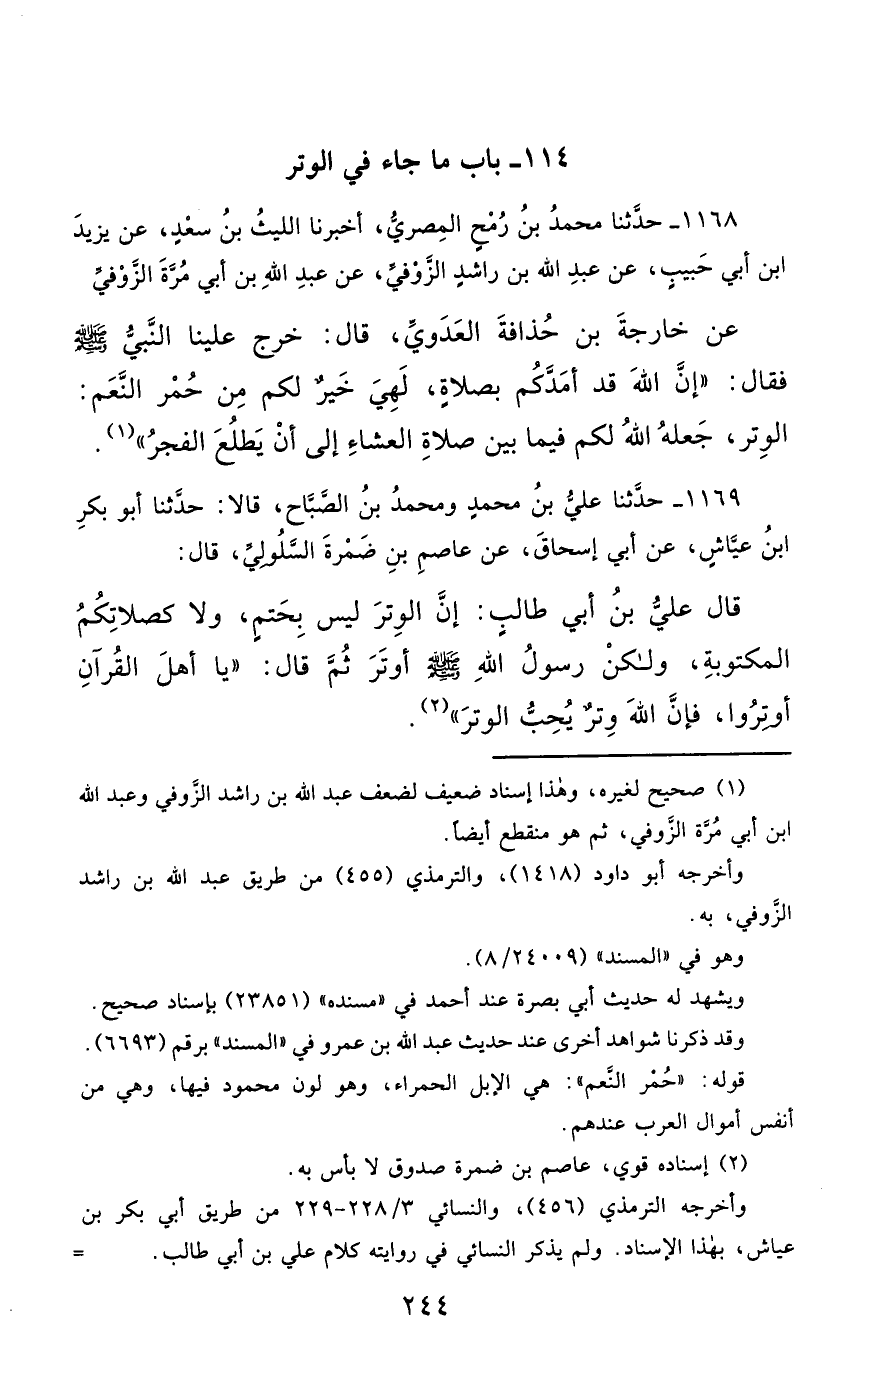 ١١٤ـ باب ما جاء في الوتر
١١٦٨ـ حدَّثنا محمدُ بنُ رُمْحٍ المِصريُّ، أخبرنا الليثُ بنُ سعْدٍ، عن يزيدَ
ابن أبي حَبيبٍ، عن عبدِ الله بن راشدٍ الزَّوْفيِّ، عن عبدِ اللهِ بن أبي مُرَّةَ الزَّوْفيِّ
عن خارجةَ بن حُذافةَ العَدَويِّ، قال: خرج علينا النَّبيُّ ﷺ
فقال: «إنَّ اللهَ قد أمَدَّكُم بصلاةٍ، لَهِيَ خَيرٌ لكم مِن حُمْر النَّعَم:
الوِتر، جَعلهُ اللهُ لكم فيما بين صلاةِ العشاءِ إلى أنْ يَطلُعَ الفجرُ»(١).
١١٦٩ـ حدَّثنا عليُّ بنُ محمدٍ ومحمدُ بنُ الصَّبَّاح، قالا: حدَّثنا أبو بكرِ
ابنُ عيَّاشٍ، عن أبي إسحاقَ، عن عاصمِ بنِ ضَمْرةَ السَّلُوليِّ، قال:
قال عليُّ بنُ أبي طالبٍ: إنَّ الوِترَ ليس بِحَتمٍ، ولا كصلاتِكُمُ
المكتوبةِ، ولٰكنْ رسولُ اللهِ ﷺ أوتَرَ ثُمَّ قال: «يا أهلَ القُرآنِ
أوتِرُوا، فإنَّ اللهَ وِترٌ يُحِبُّ الوترَ»(٢).
(١) صحيح لغيره، وهٰذا إسناد ضعيف لضعف عبد الله بن راشد الزَّوفي وعبد الله
ابن أبي مُرَّة الزَّوفي، ثم هو منقطع أيضاً.
وأخرجه أبو داود (١٤١٨)، والترمذي (٤٥٥) من طريق عبد الله بن راشد
الزَّوفي، به.
وهو في «المسند» (٨/٢٤٠٠٩).
ويشهد له حديث أبي بصرة عند أحمد في «مسنده» (٢٣٨٥١) بإسناد صحيح.
وقد ذكرنا شواهد أخرى عند حديث عبد الله بن عمرو في «المسند» برقم (٦٦٩٣).
قوله: «حُمْر النَّعم»: هي الإبل الحمراء، وهو لون محمود فيها، وهي من
أنفس أموال العرب عندهم.
(٢) إسناده قوي، عاصم بن ضمرة صدوق لا بأس به.
وأخرجه الترمذي (٤٥٦)، والنسائي ٣/٢٢٨-٢٢٩ من طريق أبي بكر بن
عياش، بهٰذا الإسناد. ولم يذكر النسائي في روايته كلام علي بن أبي طالب. =
٢٤٤